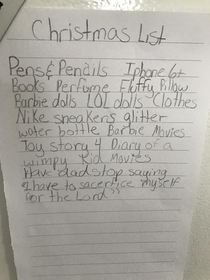 Christmas List
Pens & Pencils Iphone 6+
Books Perfume Fluffy Pillow
Barbie dolls LOL dolls Clothes
Nike sneakers glitter
water bottle Barbie Movies
Toy story 4 Diary of a
wimpy Kid Movies
Have dad stop saying
"I have to sacerfice myself
for the Lord"